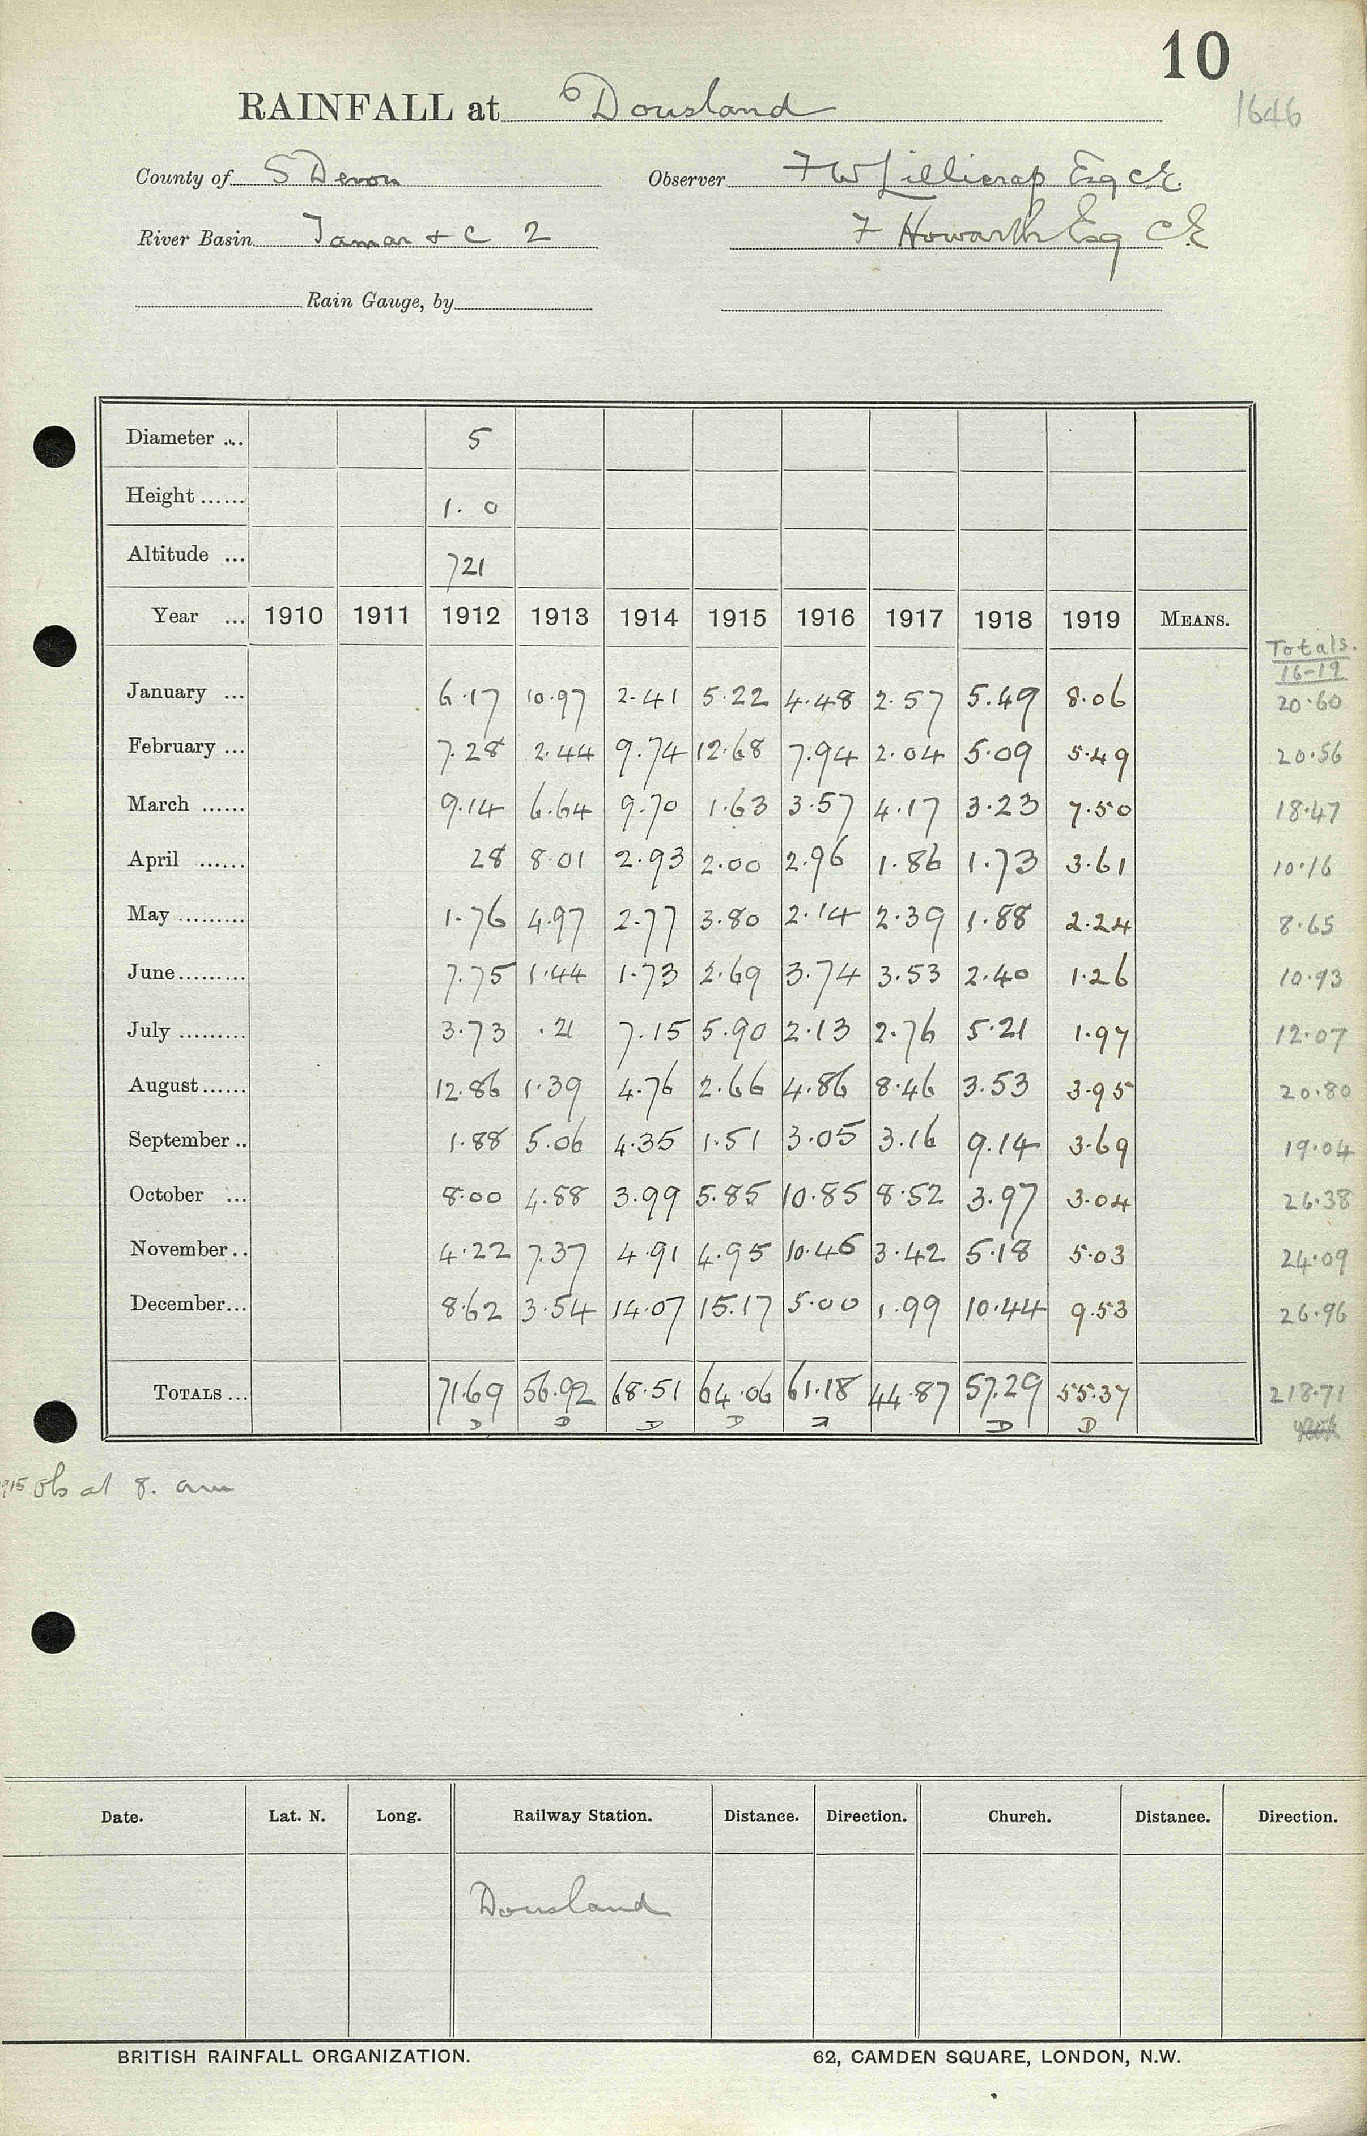 10
RAINFALL at Dousland
1646
County of S Devon Observer F W Lillicrap Esq C.E.
River Basin Tamar & C 2 F Howarth Esq CE
Rain Gauge, by
Diameter ... 5
Height ...... 1. 0
Altitude ... 721
Year ... 1910 1911 1912 1913 1914 1915 1916 1917 1918 1919 MEANS.
Totals.
16-19
January ... 6.17 10.97 2.41 5.22 4.48 2.57 5.49 8.06 20.60
February ... 7.28 2.44 9.74 12.68 7.94 2.04 5.09 5.49 20.56
March ...... 9.14 6.64 9.70 1.63 3.57 4.17 3.23 7.50 18.47
April ...... 28 8.01 2.93 2.00 2.96 1.86 1.73 3.61 10.16
May ......... 1.76 4.97 2.77 3.80 2.14 2.39 1.88 2.24 8.65
June......... 7.75 1.44 1.73 2.69 3.74 3.53 2.40 1.26 10.93
July ......... 3.73 .21 7.15 5.90 2.13 2.76 5.21 1.97 12.07
August...... 12.86 1.39 4.76 2.66 4.86 8.46 3.53 3.95 20.80
September .. 1.88 5.06 4.35 1.51 3.05 3.16 9.14 3.69 19.04
October ... 8.00 4.88 3.99 5.85 10.85 8.52 3.97 3.04 26.38
November .. 4.22 7.37 4.91 4.95 10.46 3.42 5.18 5.03 24.09
December... 8.62 3.54 14.07 15.17 5.00 1.99 10.44 9.53 26.96
TOTALS ... 71.69 56.92 68.51 64.06 61.18 44.87 57.29 55.37 218.71
D D D D D D D
1915 Ob at 8. am
Date. Lat. N. Long. Railway Station. Distance. Direction. Church. Distance. Direction.
Dousland
BRITISH RAINFALL ORGANIZATION. 62, CAMDEN SQUARE, LONDON, N.W.